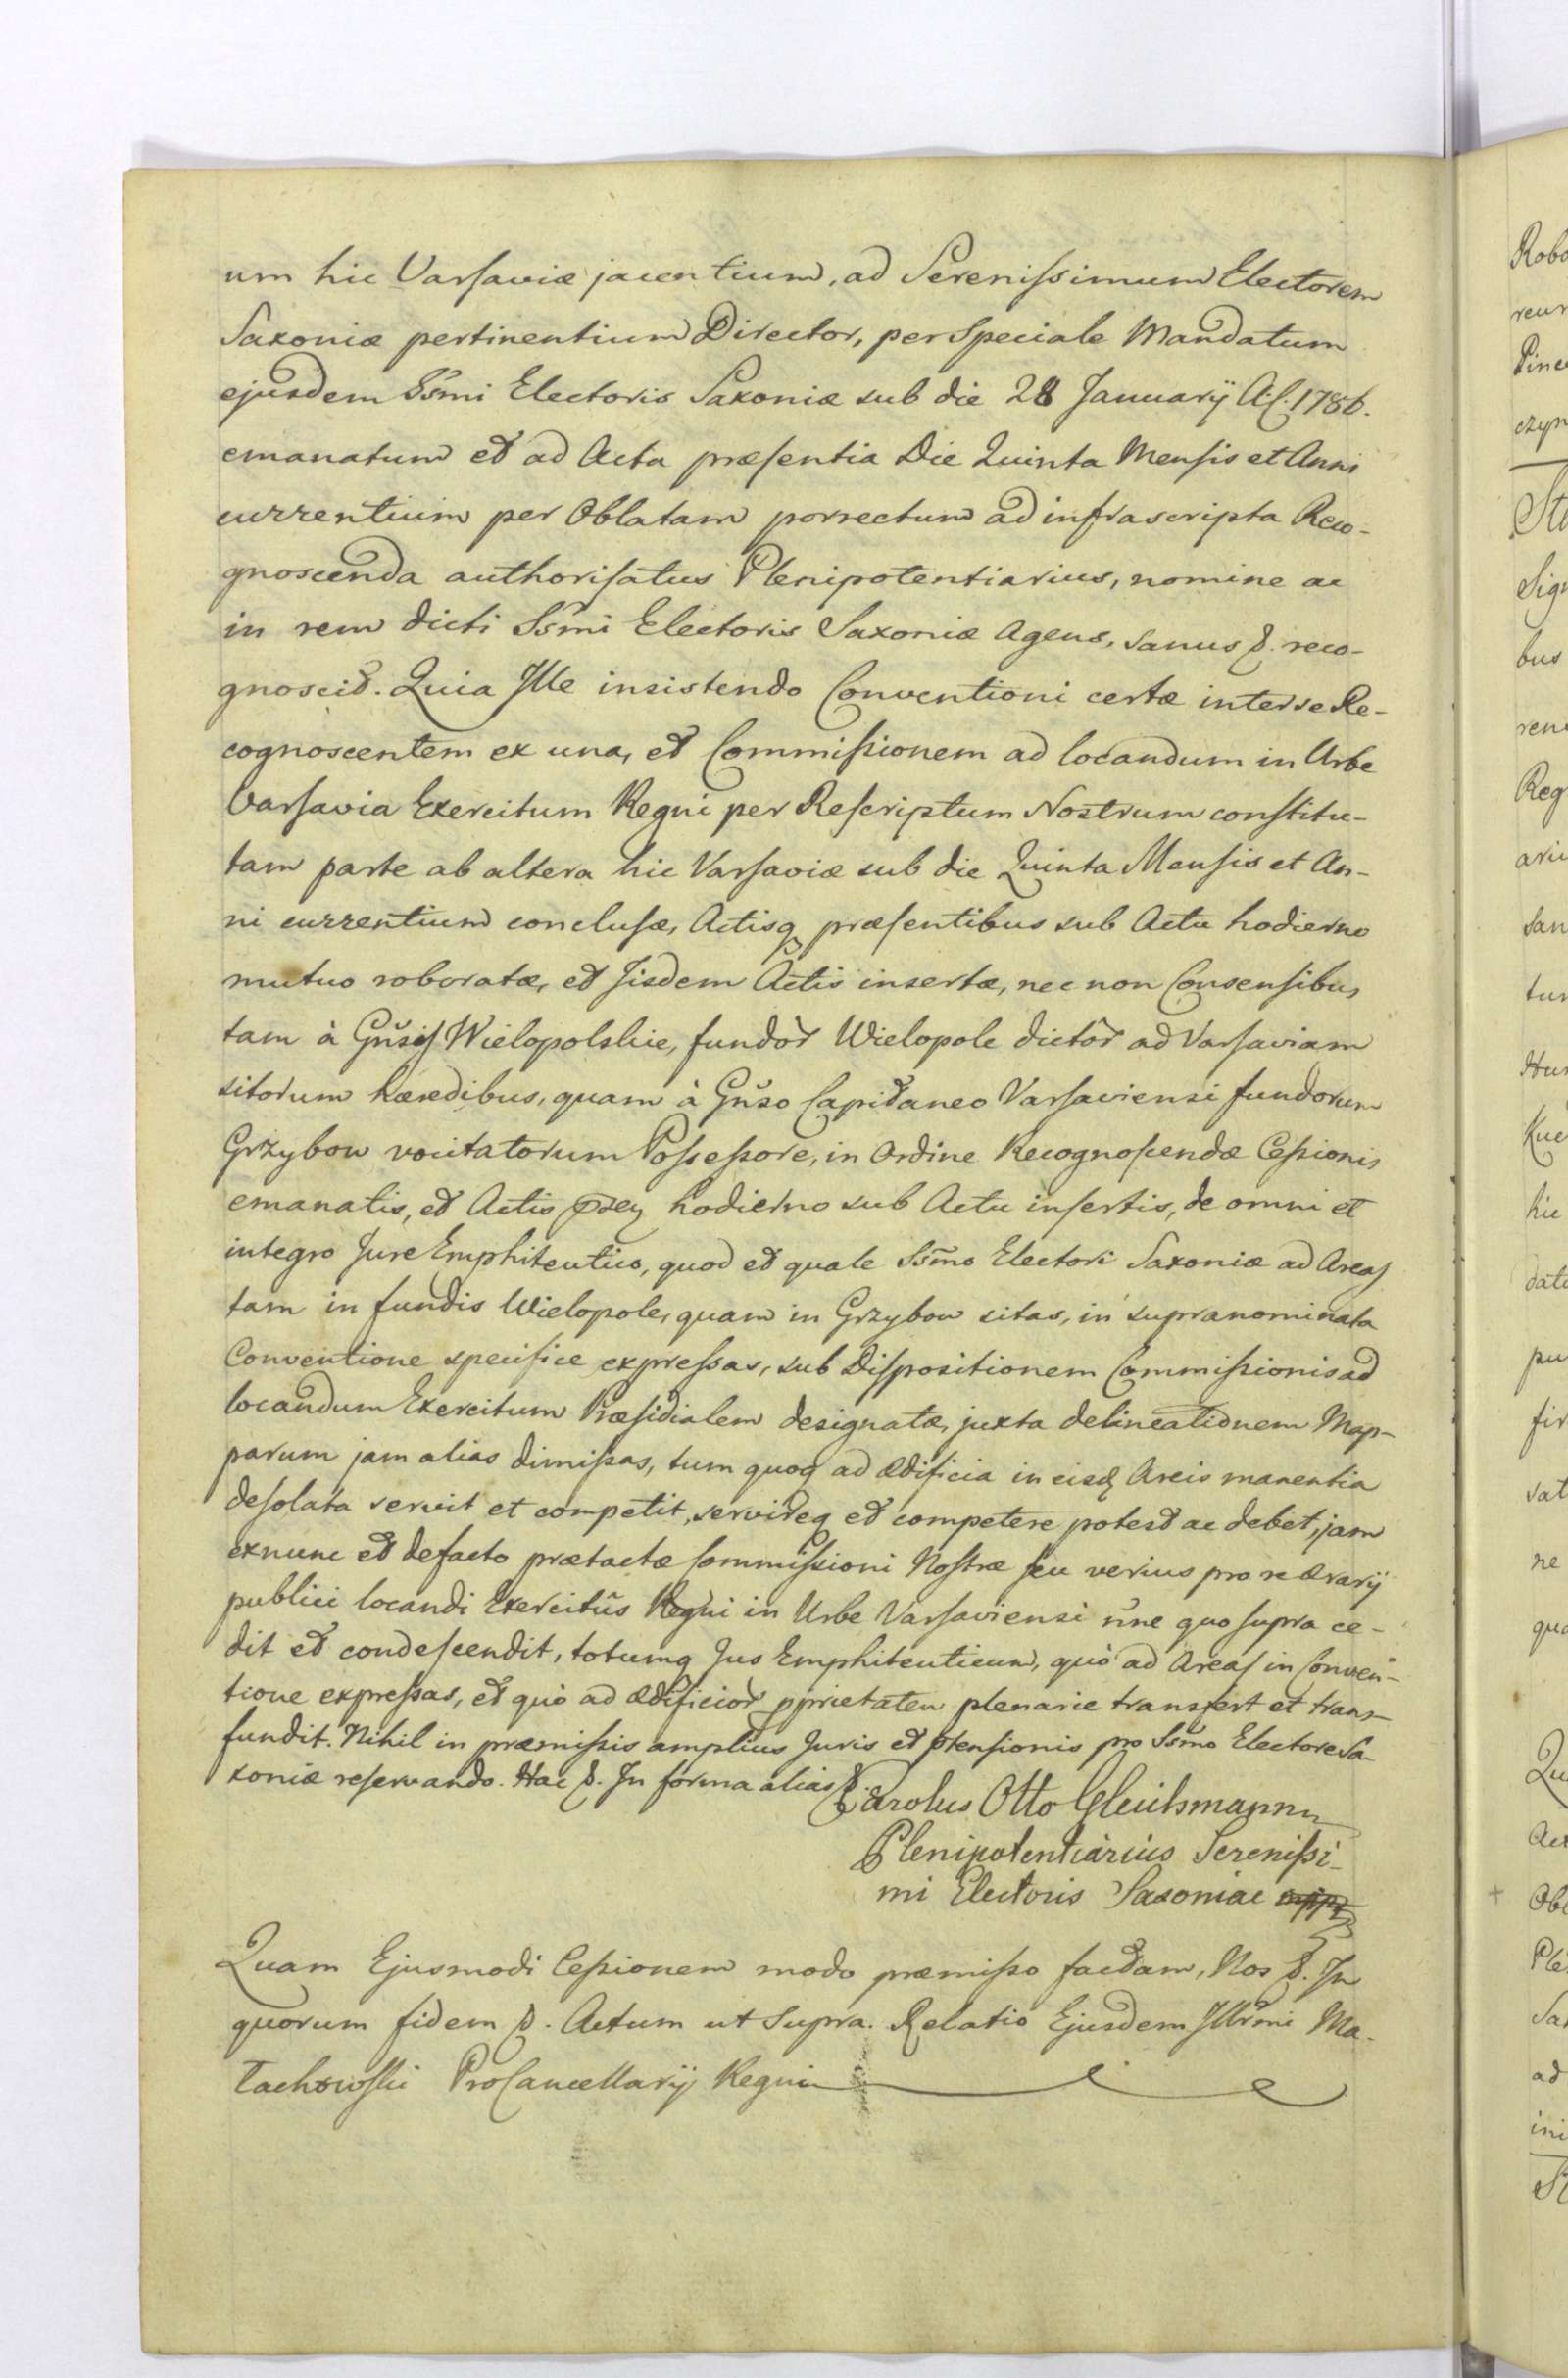 um hic Varſaviæ jacentium, ad Sereniſsimum Electorem
Saxoniæ pertinentium Director, per Speciale Mandatum
ejusdem Ssmi Electoris Saxoniæ sub die 28 Januarij A. C. 1786.
emanatum et ad Acta præſentia Die Quinta Menſis et Anni
currentium per Oblatam porrectum ad infrascripta Reco-
gnoscenda authoriſatus Plenipotentiarius, nomine ac
in rem dicti Ssmi Electoris Saxoniæ Agens, sanus &. reco-
gnoscit. Quia Ille insistendo Conventioni certæ inter se Re-
cognoscentem ex una, et Commiſsionem ad locandum in Urbe
Varſavia Exercitum Regni per Reſcriptum Nostrum conſtitu-
tam parte ab altera hic Varſaviæ sub die Quinta Menſis et An-
ni currentium concluſæ, Actisq præſentibus sub Actu hodierno
mutuo roboratæ, et Iisdem Actis insertæ, nec non Conſensibus
tam à Gnsis Wielopolskie, fundor Wielopole dictor ad Varſaviam
sitorum hæredibus, quam à Gnso Capitaneo Varſaviensi fundorum
Grzybow vocitatorum Poſseſsore, in Ordine Recognoſcendæ Ceſsionis
emanatis, et Actis hodierno sub Actu inſertis, de omni et
integro Jure Emphiteutico, quod et quale Ssmo Electori Saxoniæ ad Areas
tam in fundis Wielopole, quam in Grzybow sitas, in supranominata
Conventione specifice expreſsas, sub Diſpositionem Commiſsionis ad
locandum Exercitum Præſidialem designatæ, juxta delineationem Map-
parum jam alias dimiſsas, tum quoq ad ædificia in eisd Areis manentia
deſolata servit et competit, servireq et competere potest ac debet, jam
exnunc et defacto prætactæ Commiſsioni Noſtræ ſeu verius pro re ærarij
publici locandi Exercitûs Regni in Urbe Varſaviensi nne quo ſupra ce-
dit et condeſcendit, totumq Jus Emphiteuticum, quò ad Areas in Conven-
tione expreſsas, et quò ad ædificior pprietatem plenarie transfert et trans-
fundit. Nihil in præmiſsis amplius Juris et ptenſionis pro Ssmo Electore Sa-
xoniæ reſervando. Hac &. In forma alias &.
Carolus Otto Gleichsmann
Plenipotentiarius Sereniſsi-
mi Electoris Saxoniae mpp
Quam Ejusmodi Ceſsionem modo præmiſso factam, Nos &. In
quorum fidem &. Actum ut Supra. Relatio Ejusdem Illrmi Ma-
łachowſki ProCancellarij Regni